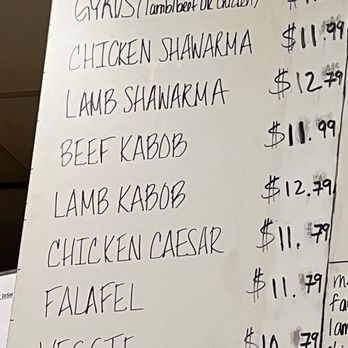 GYROS (lamb/beef OR chicken) $
CHICKEN SHAWARMA $11.99
LAMB SHAWARMA $12.79
BEEF KABOB $11.99
LAMB KABOB $12.79
CHICKEN CAESAR $11.79
FALAFEL $11.79
VEGGIE $10.79